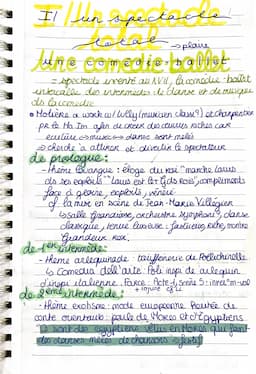 I) Un spectacle
total
→ plaire
Une comédie-ballet
= spectacle inventé au XVII, la comédie-ballet
intercalle des intermèdes de danse et de musique
ds la comédie
• Molière a work w/ Lully (musicien class) et charpentier
pr le Ma Im afin de créer des œuvres riches car
écriture → muse → danse ont mélés
↳ cherche à attirer et divertir le spectateur
de prologue :
- thème louange : éloge du roi "marche louis
ds ses exploits" "louis est le + gds rois", compliments
face à guerre, exploits, vénéré
of la mise en scène de Jean-Marie Villégier
↳ Salle grandiose, orchestre symphonique, danse
classique, tenue luxueuse : fastueux, riche, montre
Grandeur roi.
de 1er intermède :
- thème arlequinade :
↳ Comedia dell'arte. Poli inspi de arlequin
d'inspi italienne. Farce : Acte 1, scène 5 :
de 2ème intermède :
- thème exotisme : mode européenne
conte orientaux : parle de Mores et d'Égyptiens
Ce sont des égyptiens vêtus en Mores qui font
des danses mêlées de chansons festif